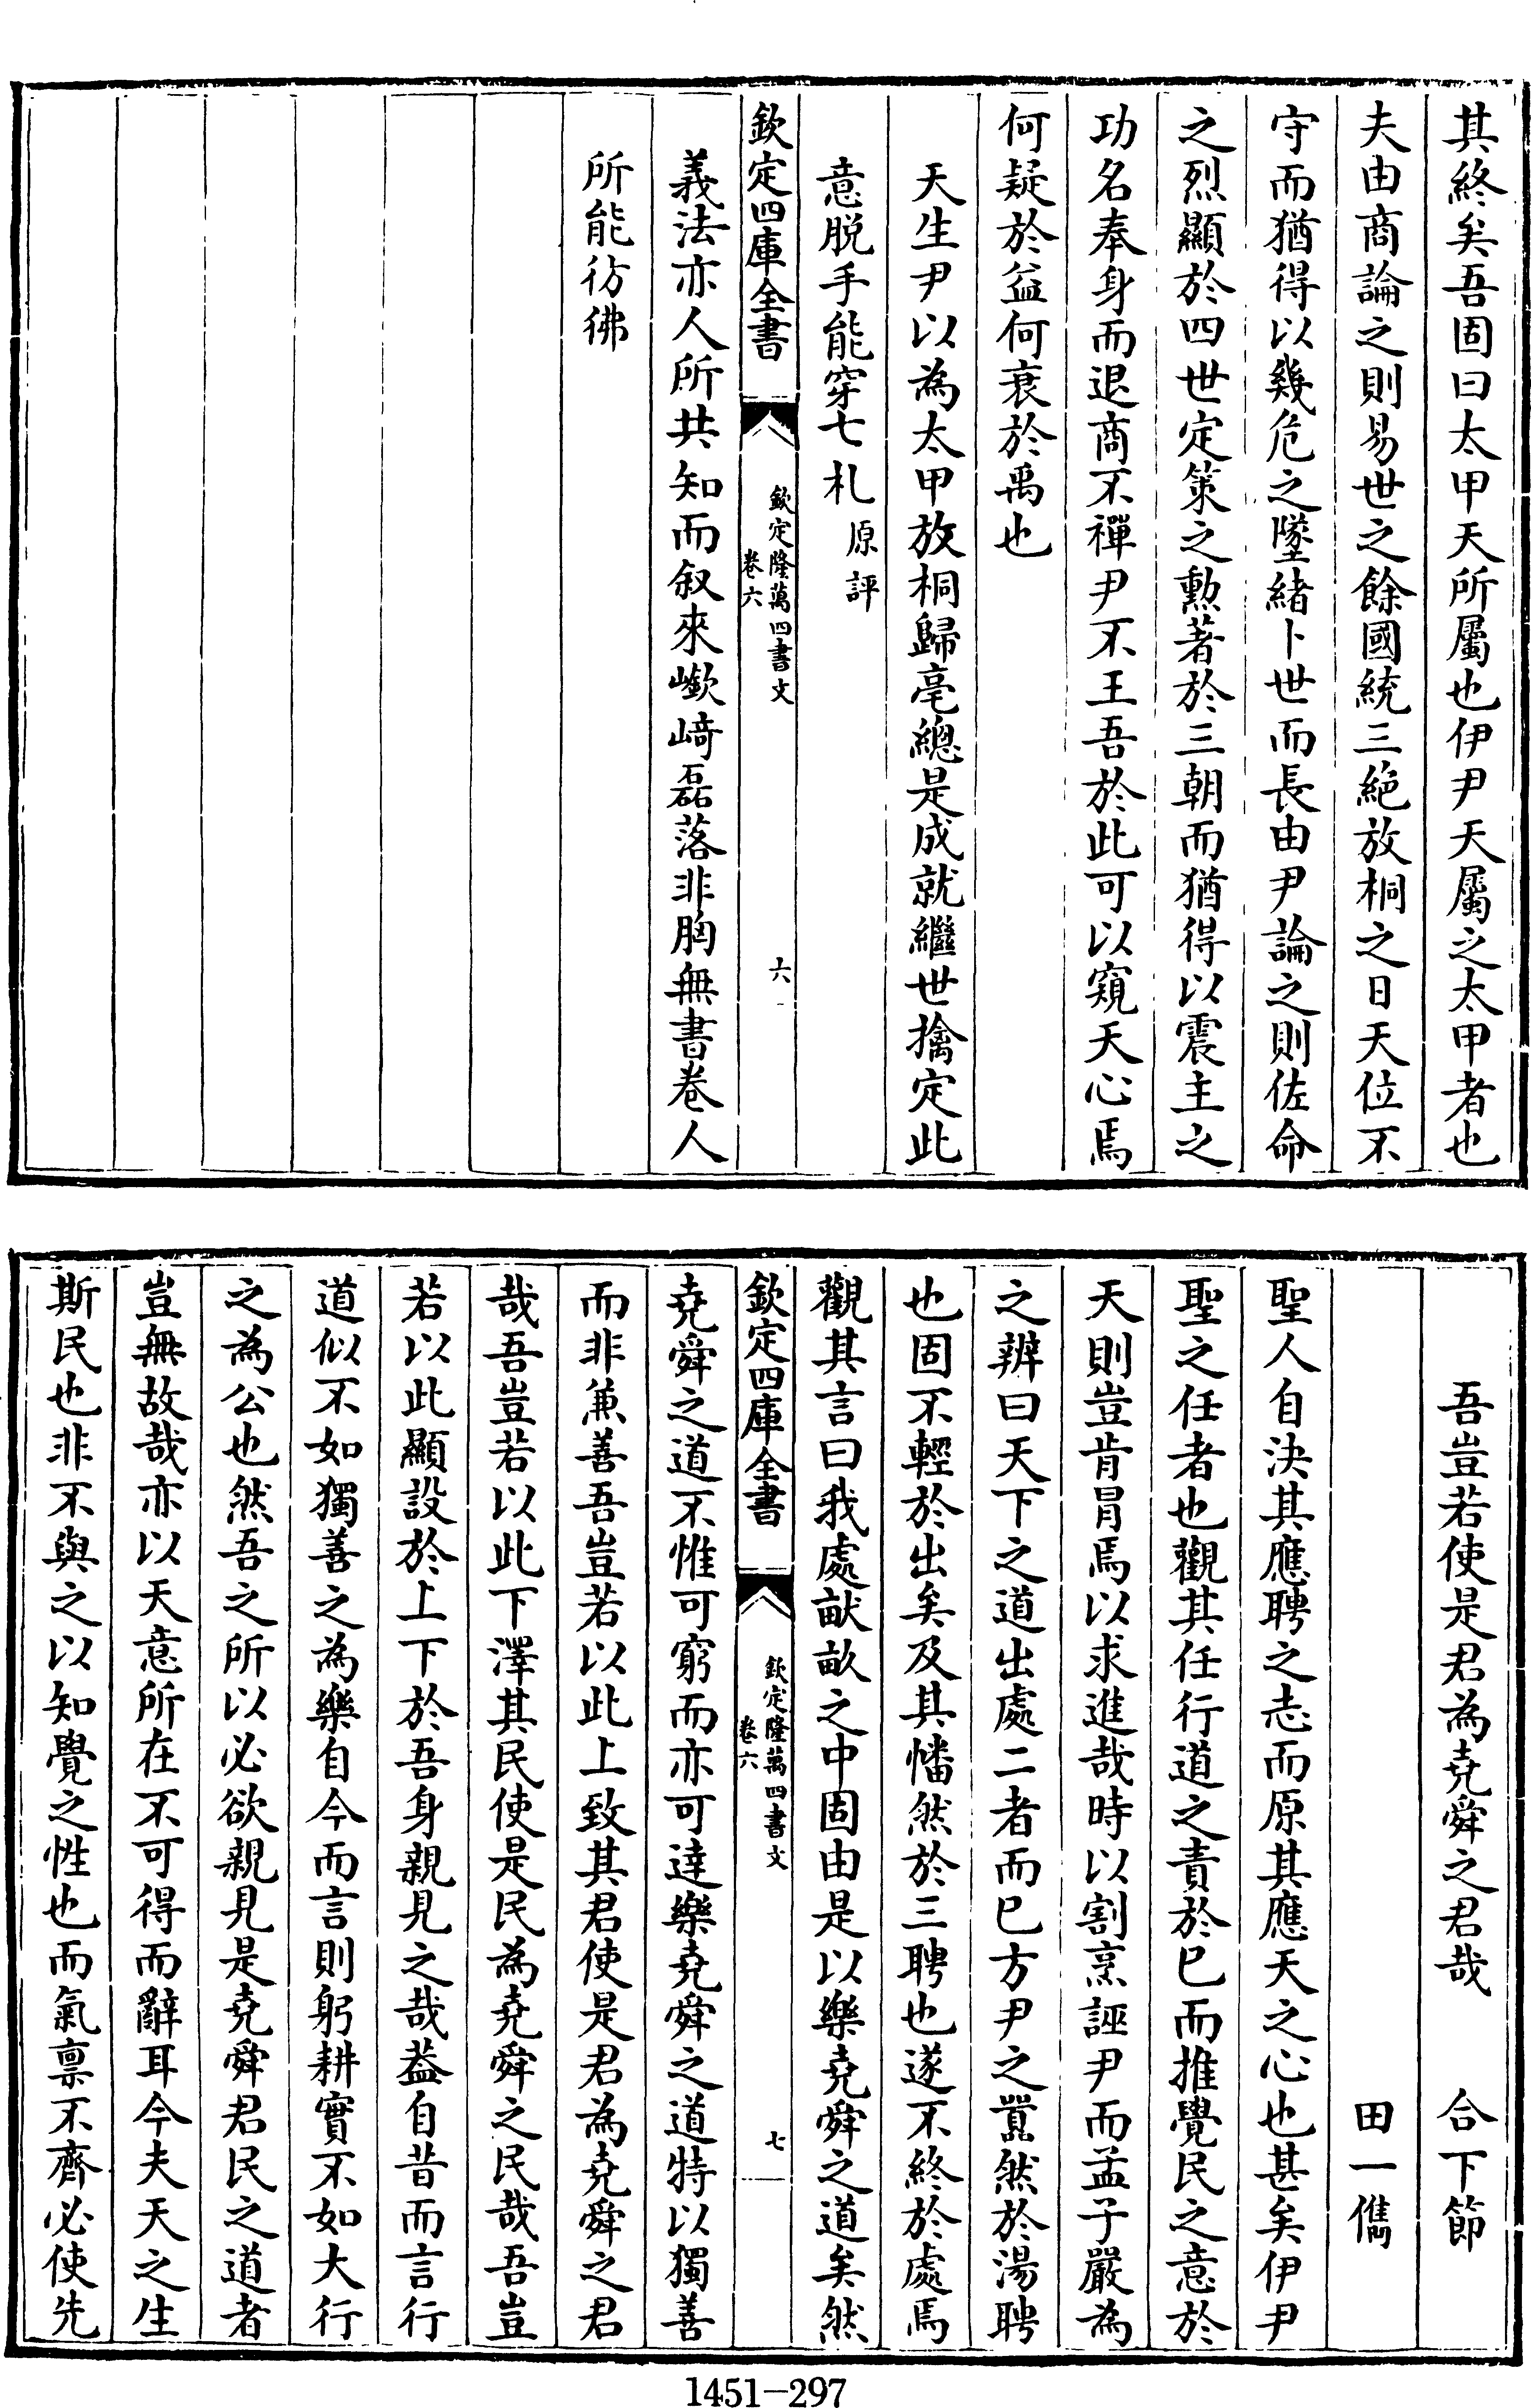 其終矣吾固曰太甲天所屬也伊尹天屬之太甲者也
夫由商論之則易世之餘國統三絶放桐之日天位不
守而猶得以幾危之墜緒卜世而長由尹論之則佐命
之烈顯於四世定策之勲著於三朝而猶得以震主之
功名奉身而退商不禪尹不王吾於此可以窺天心焉
何疑於益何衰於禹也
天生尹以為太甲放桐歸亳總是成就繼世擒定此
意脱手能穿七札原評
欽定四庫全書
欽定隆萬四書文
卷六
六
義法亦人所共知而叙來嶔﨑磊落非胸無書卷人
所能彷彿
吾豈若使是君為堯舜之君哉 合下節
田一儁
聖人自決其應聘之志而原其應天之心也甚矣伊尹
聖之任者也觀其任行道之責於已而推覺民之意於
天則豈肯冒焉以求進哉時以割烹誣尹而孟子嚴為
之辨曰天下之道出處二者而已方尹之囂然於湯聘
也固不輕於出矣及其幡然於三聘也遂不終於處焉
觀其言曰我處畎畝之中固由是以樂堯舜之道矣然
欽定四庫全書
欽定隆萬四書文
卷六
七
堯舜之道不惟可窮而亦可達樂堯舜之道特以獨善
而非兼善吾豈若以此上致其君使是君為堯舜之君
哉吾豈若以此下澤其民使是民為堯舜之民哉吾豈
若以此顯設於上下於吾身親見之哉葢自昔而言行
道似不如獨善之為樂自今而言則躬耕實不如大行
之為公也然吾之所以必欲親見是堯舜君民之道者
豈無故哉亦以天意所在不可得而辭耳今夫天之生
斯民也非不與之以知覺之性也而氣禀不齊必使先
1451-297